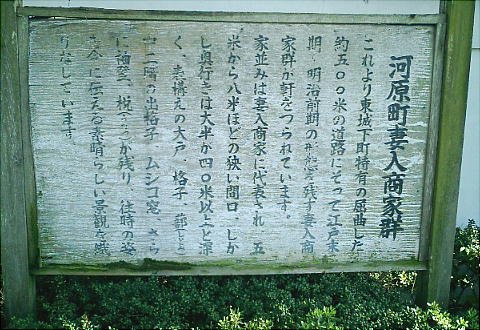 河原町妻入商家群
これより東城下町特有の屈曲した
約五〇〇米の道路にそって江戸末
期、明治前期の形態を残す妻入商
家群が軒をつらねています。
家並みは妻入商家に代表され、五
米から八米ほどの狭い間口、しか
し奥行きは大半が四〇米以上と深
く、表構えの大戸、格子、蔀と
中二階の出格子、ムシコ窓、さら
に袖壁、が残り、往時の姿
を今に伝える素晴らしい景観を織
りなしています。